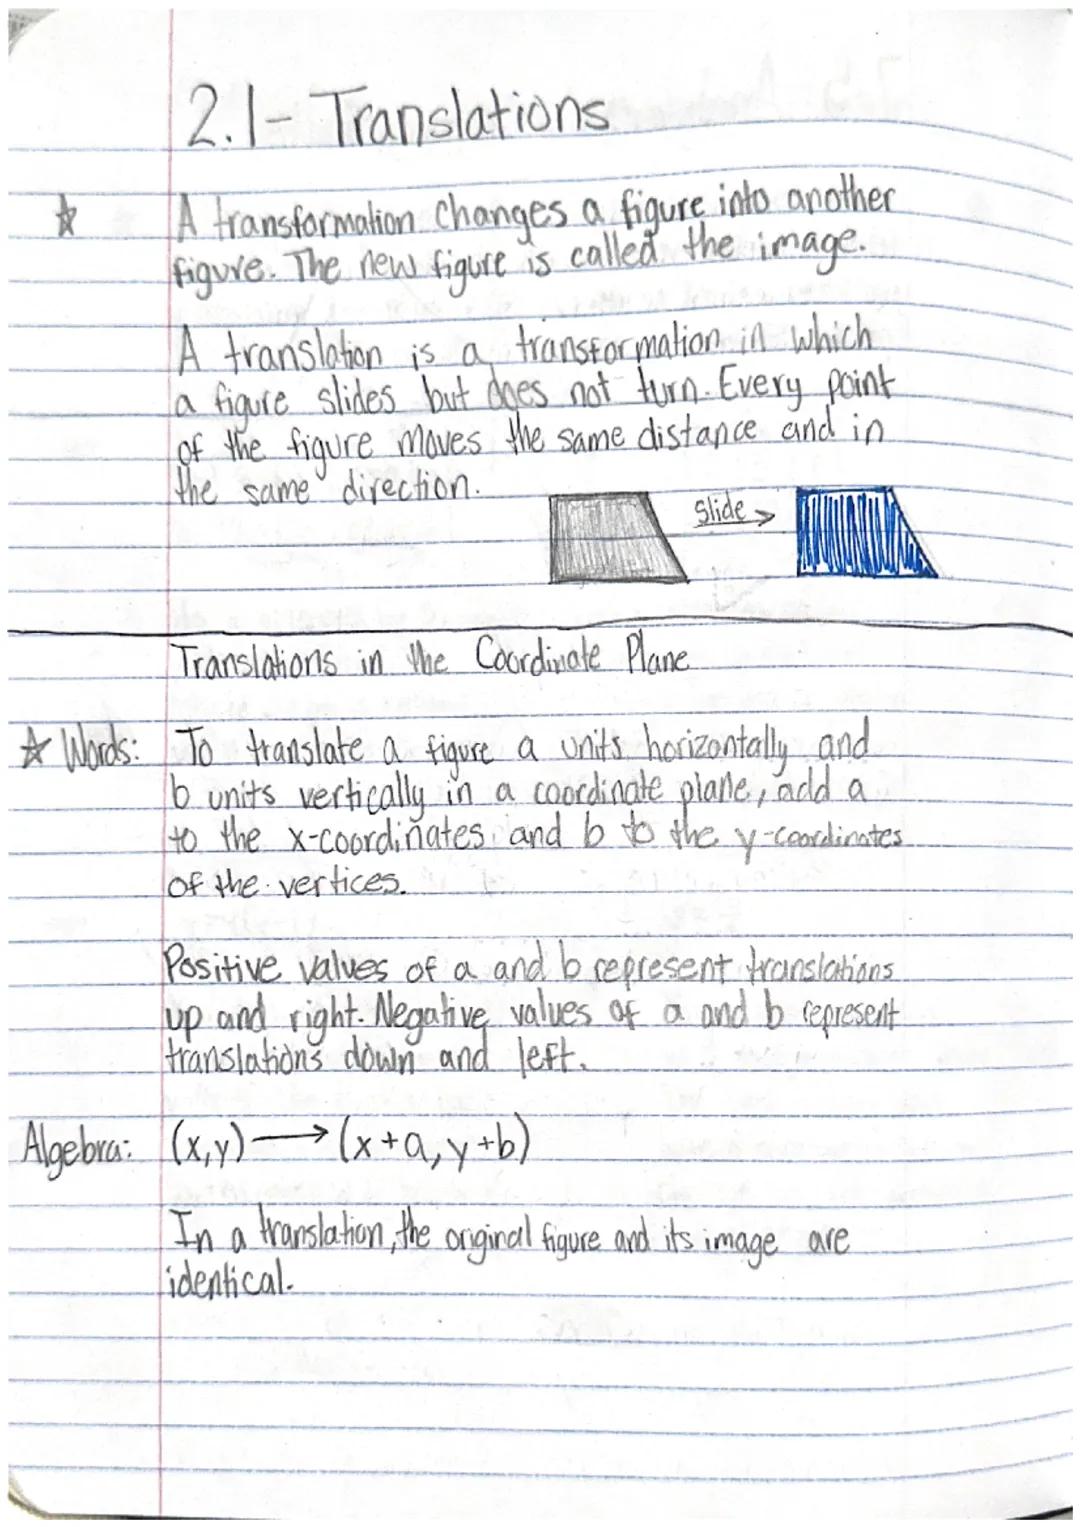 2.1- Translations
☆ A transformation changes a figure into another
figure. The new figure is called the image.
A translation is a transformation in which
a figure slides but does not turn. Every point
of the figure moves the same distance and in
the same direction.
Slide →
Translations in the Coordinate Plane
☆ Words: To translate a figure a units horizontally and
b units vertically in a coordinate plane, add a
to the x-coordinates and b to the y-coordinates
of the vertices.
Positive values of a and b represent translations
up and right. Negative values of a and b represent
translations down and left.
Algebra: (x,y) → (x+a, y+b)
In a translation, the original figure and its image are
identical.